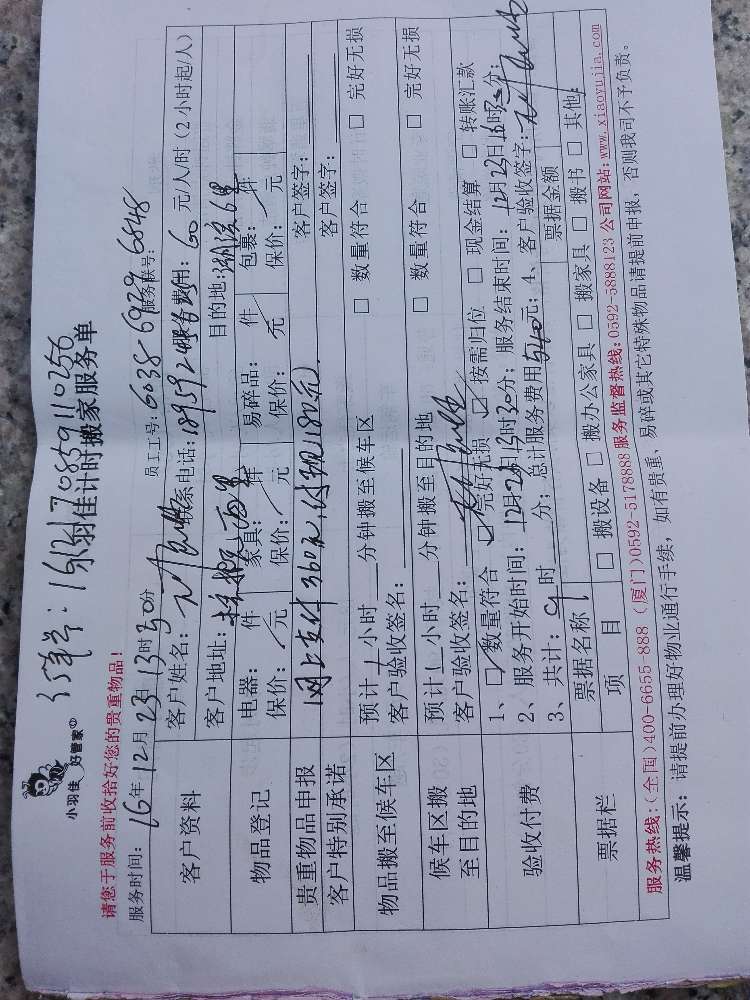 订单号:
小羽佳 好管家
小羽佳计时搬家服务单
请您于服务前收拾好您的贵重物品!
服务时间: 16年12月23日13时30分 员工工号: 6038-6929 6848 服务联号:
客户资料 客户姓名: 联系电话: 服务费用: 60 元/人/时(2小时起/人)
客户地址: 目的地:
物品登记 电器: 件 家具: 件 易碎品: 件 包裹: 件
保价: 元 保价: 元 保价: 元 保价: 元
贵重物品申报 网上支付360元,付现180元). 客户签字:
客户特别承诺 客户签字:
物品搬至候车区 预计1小时 分钟搬至候车区 □ 数量符合 □ 完好无损
客户验收签名:
候车区搬至目的地 预计1小时 分钟搬至目的地 □ 数量符合 □ 完好无损
客户验收签名:
验收付费 1、☑数量符合 ☑完好无损 ☑按需归位 □ 现金结算 □ 转账汇款
2、服务开始时间: 12月23日13时30分; 服务结束时间: 12月23日16时30分;
3、共计: 9时 分; 总计服务费用540元; 4、客户验收签字:
票据栏 票据名称 票据金额
项目 □ 搬设备 □ 搬办公家具 □ 搬家具 □ 搬书 □ 其他:
服务热线:(全国)400-6655 888 (厦门)0592-5178888 服务监督热线:0592-5888123 公司网站:www.xiaoyujia.com
温馨提示: 请提前办理好物业通行手续, 如有贵重、易碎或其它特殊物品请提前申报, 否则我司不予负责。